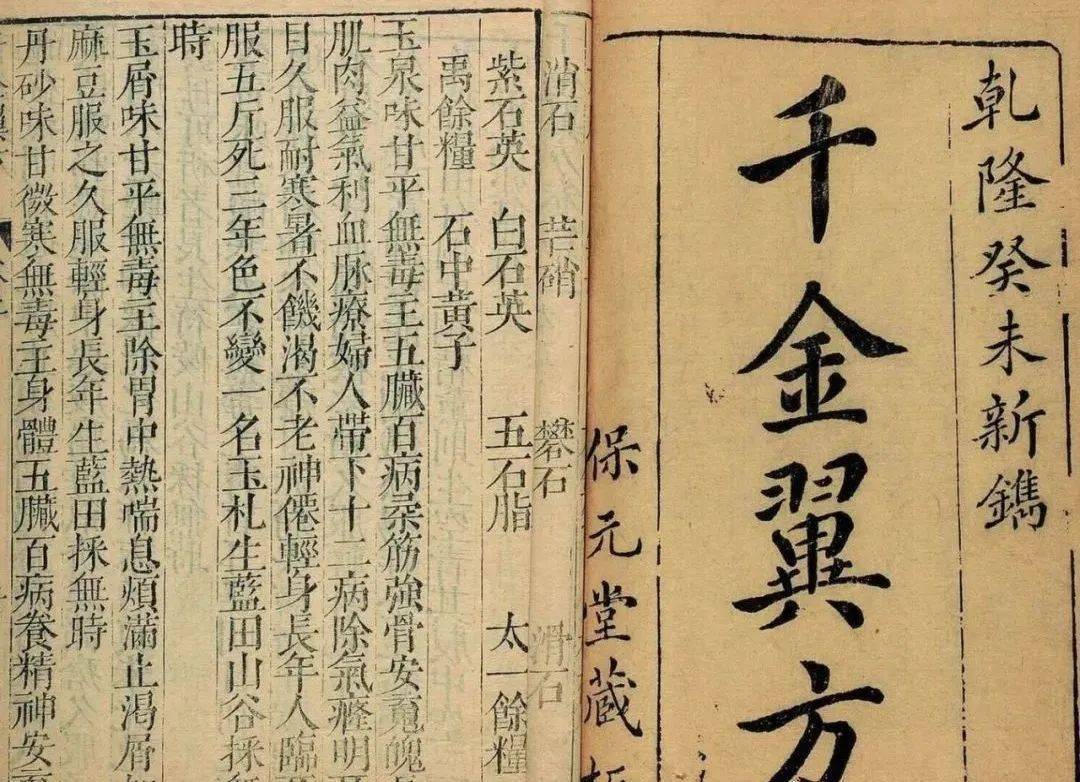 乾隆癸未新鐫
千金翼方
保元堂藏板
消石 芒硝 礬石 滑石
紫石英 白石英 五石脂 太一餘糧
禹餘糧 石中黃子
玉泉味甘平無毒主五臟百病柔筋強骨安䰟魄
肌肉益氣利血脉療婦人帶下十二病除氣癃明
目久服耐寒暑不饑渴不老神僊輕身長年人臨
服五斤死三年色不變一名玉札生藍田山谷採
時
玉屑味甘平無毒主除胃中熱喘息煩滿止渴屑
麻豆服之久服輕身長年生藍田採無時
丹砂味甘微寒無毒主身體五臟百病養精神安